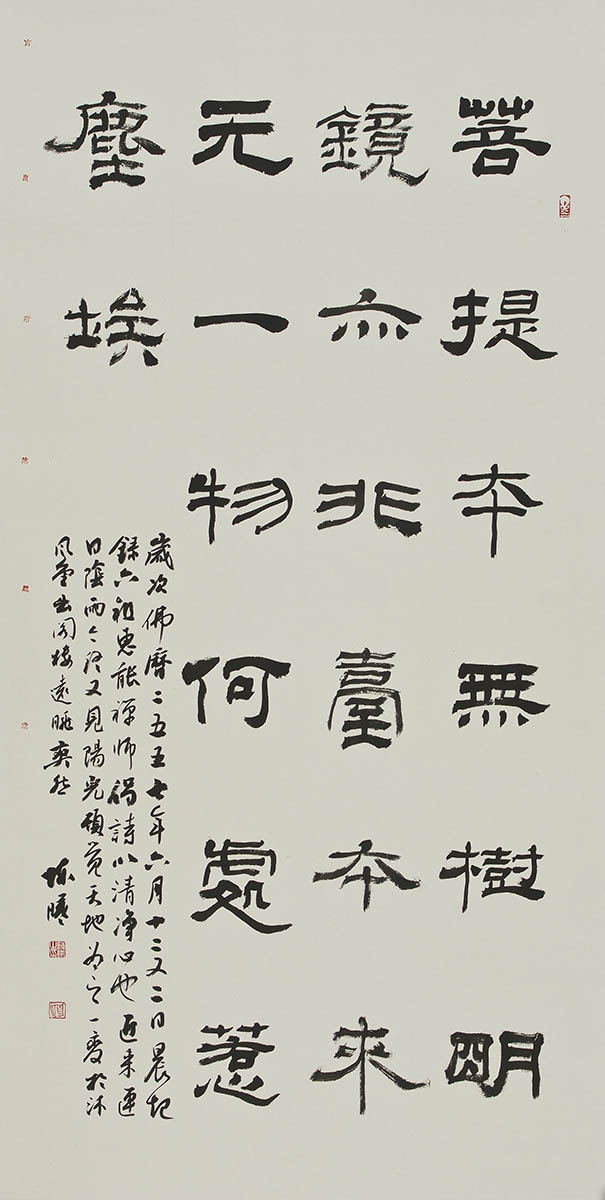 菩提本無樹明
鏡亦非臺本來
无一物何處惹
塵埃
歲次佛曆二五五七年六月十二又二日晨起
錄六祖惠能禪師偈詩以清净心也近来連
日陰雨又見陽光頓覺天地為之一變於沐
风堂閣樓遠眺爽然